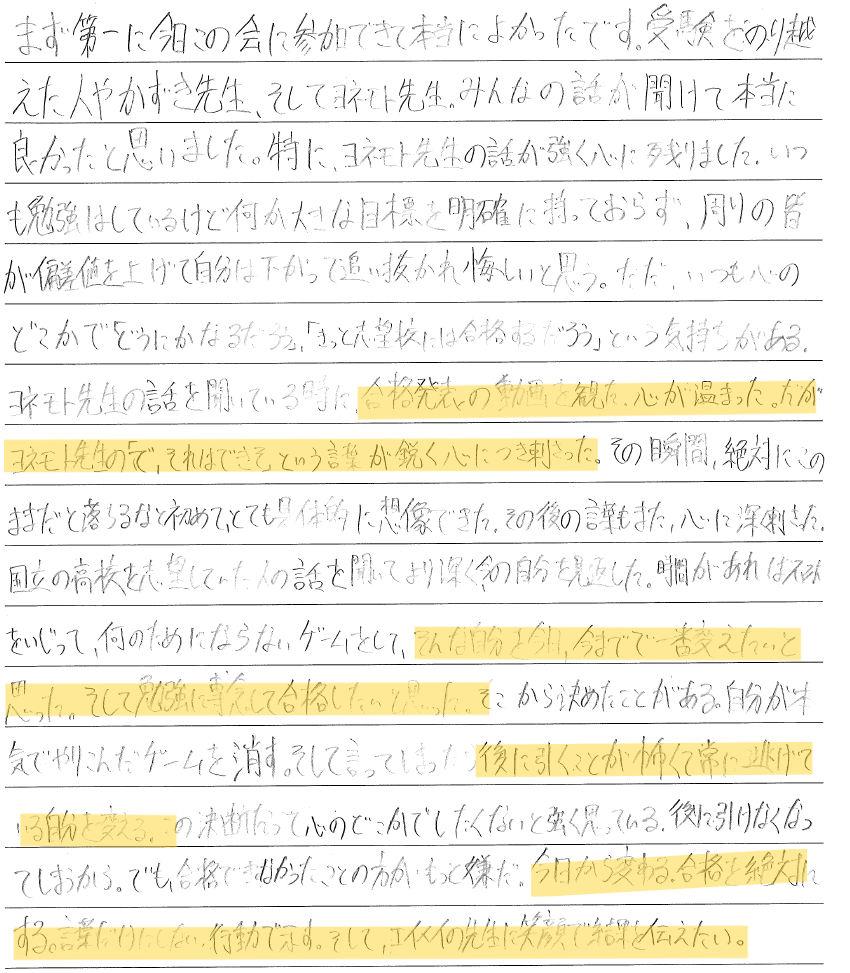 まず第一に今日この会に参加できて本当によかったです。受験をのり越
えた人やかずき先生、そしてヨネモト先生。みんなの話が聞けて本当に
良かったと思いました。特に、ヨネモト先生の話が強く心に残りました。いつ
も勉強はしているけど何か大きな目標を明確に持っておらず、周りの皆
が偏差値を上げて自分は下がって追い抜かれ悔しいと思う。ただ、いつも心の
どこかで「どうにかなるだろう」、「きっと志望校には合格するだろう」という気持ちがある。
ヨネモト先生の話を聞いている時に、合格発表の動画を観た、心が温まった。だが
ヨネモト先生の「で、それはできそ」という言葉が鋭く心につき刺さった。その瞬間、絶対にこの
ままだと落ちるなと初めて、とても具体的に想像できた。その後の言葉もまた、心に深く刺さった。
国立の高校を志望していた人の話を聞いてより深く今の自分を見返した。時間があれば
をいじって、何のためにならないゲームをして、そんな自分を今日、今までで一番変えたいと
思った。そして勉強に専念して合格したいと思った。そこから決めたことがある。自分が本
気でやりこんだゲームを消す。そして言ってしまったら後に引くことが怖くて常に逃げて
いる自分を変える。この決断だって心のどこかでしたくないと強く思っている。後に引けなくなっ
てしまうから。でも、合格できなかったことの方がもっと嫌だ。今日から変わる。合格を絶対に
する。言葉だけにしない、行動で示す。そして、エイメイの先生に笑顔で結果を伝えたい。